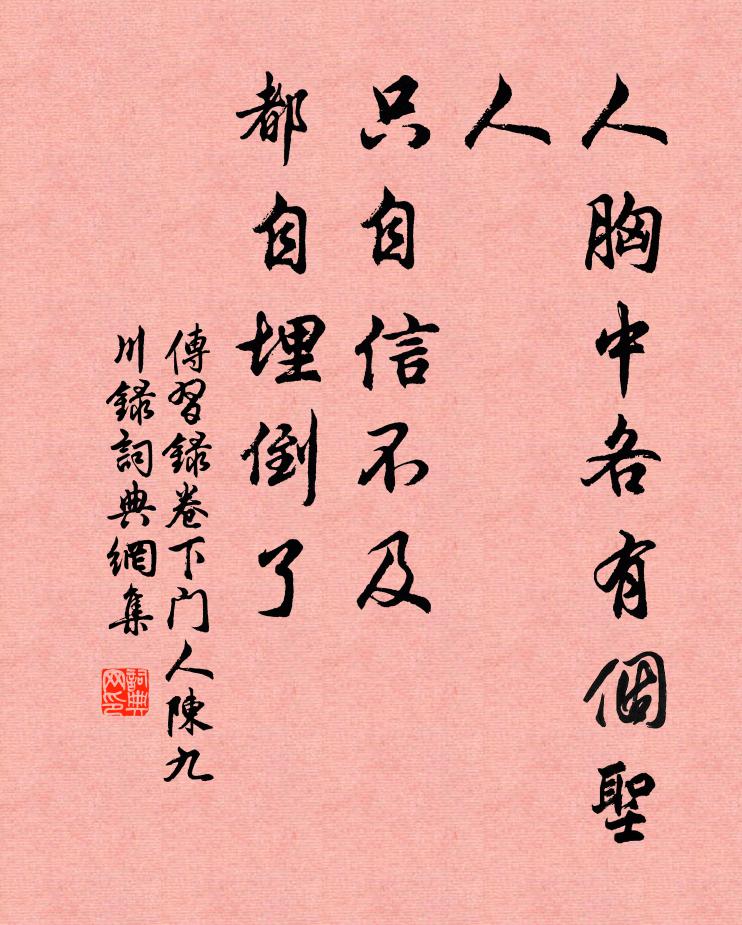 人胸中各有個聖
人
只自信不及
都自埋倒了
傳習録卷下门人陳九
川録詞典網集
詞典
网印